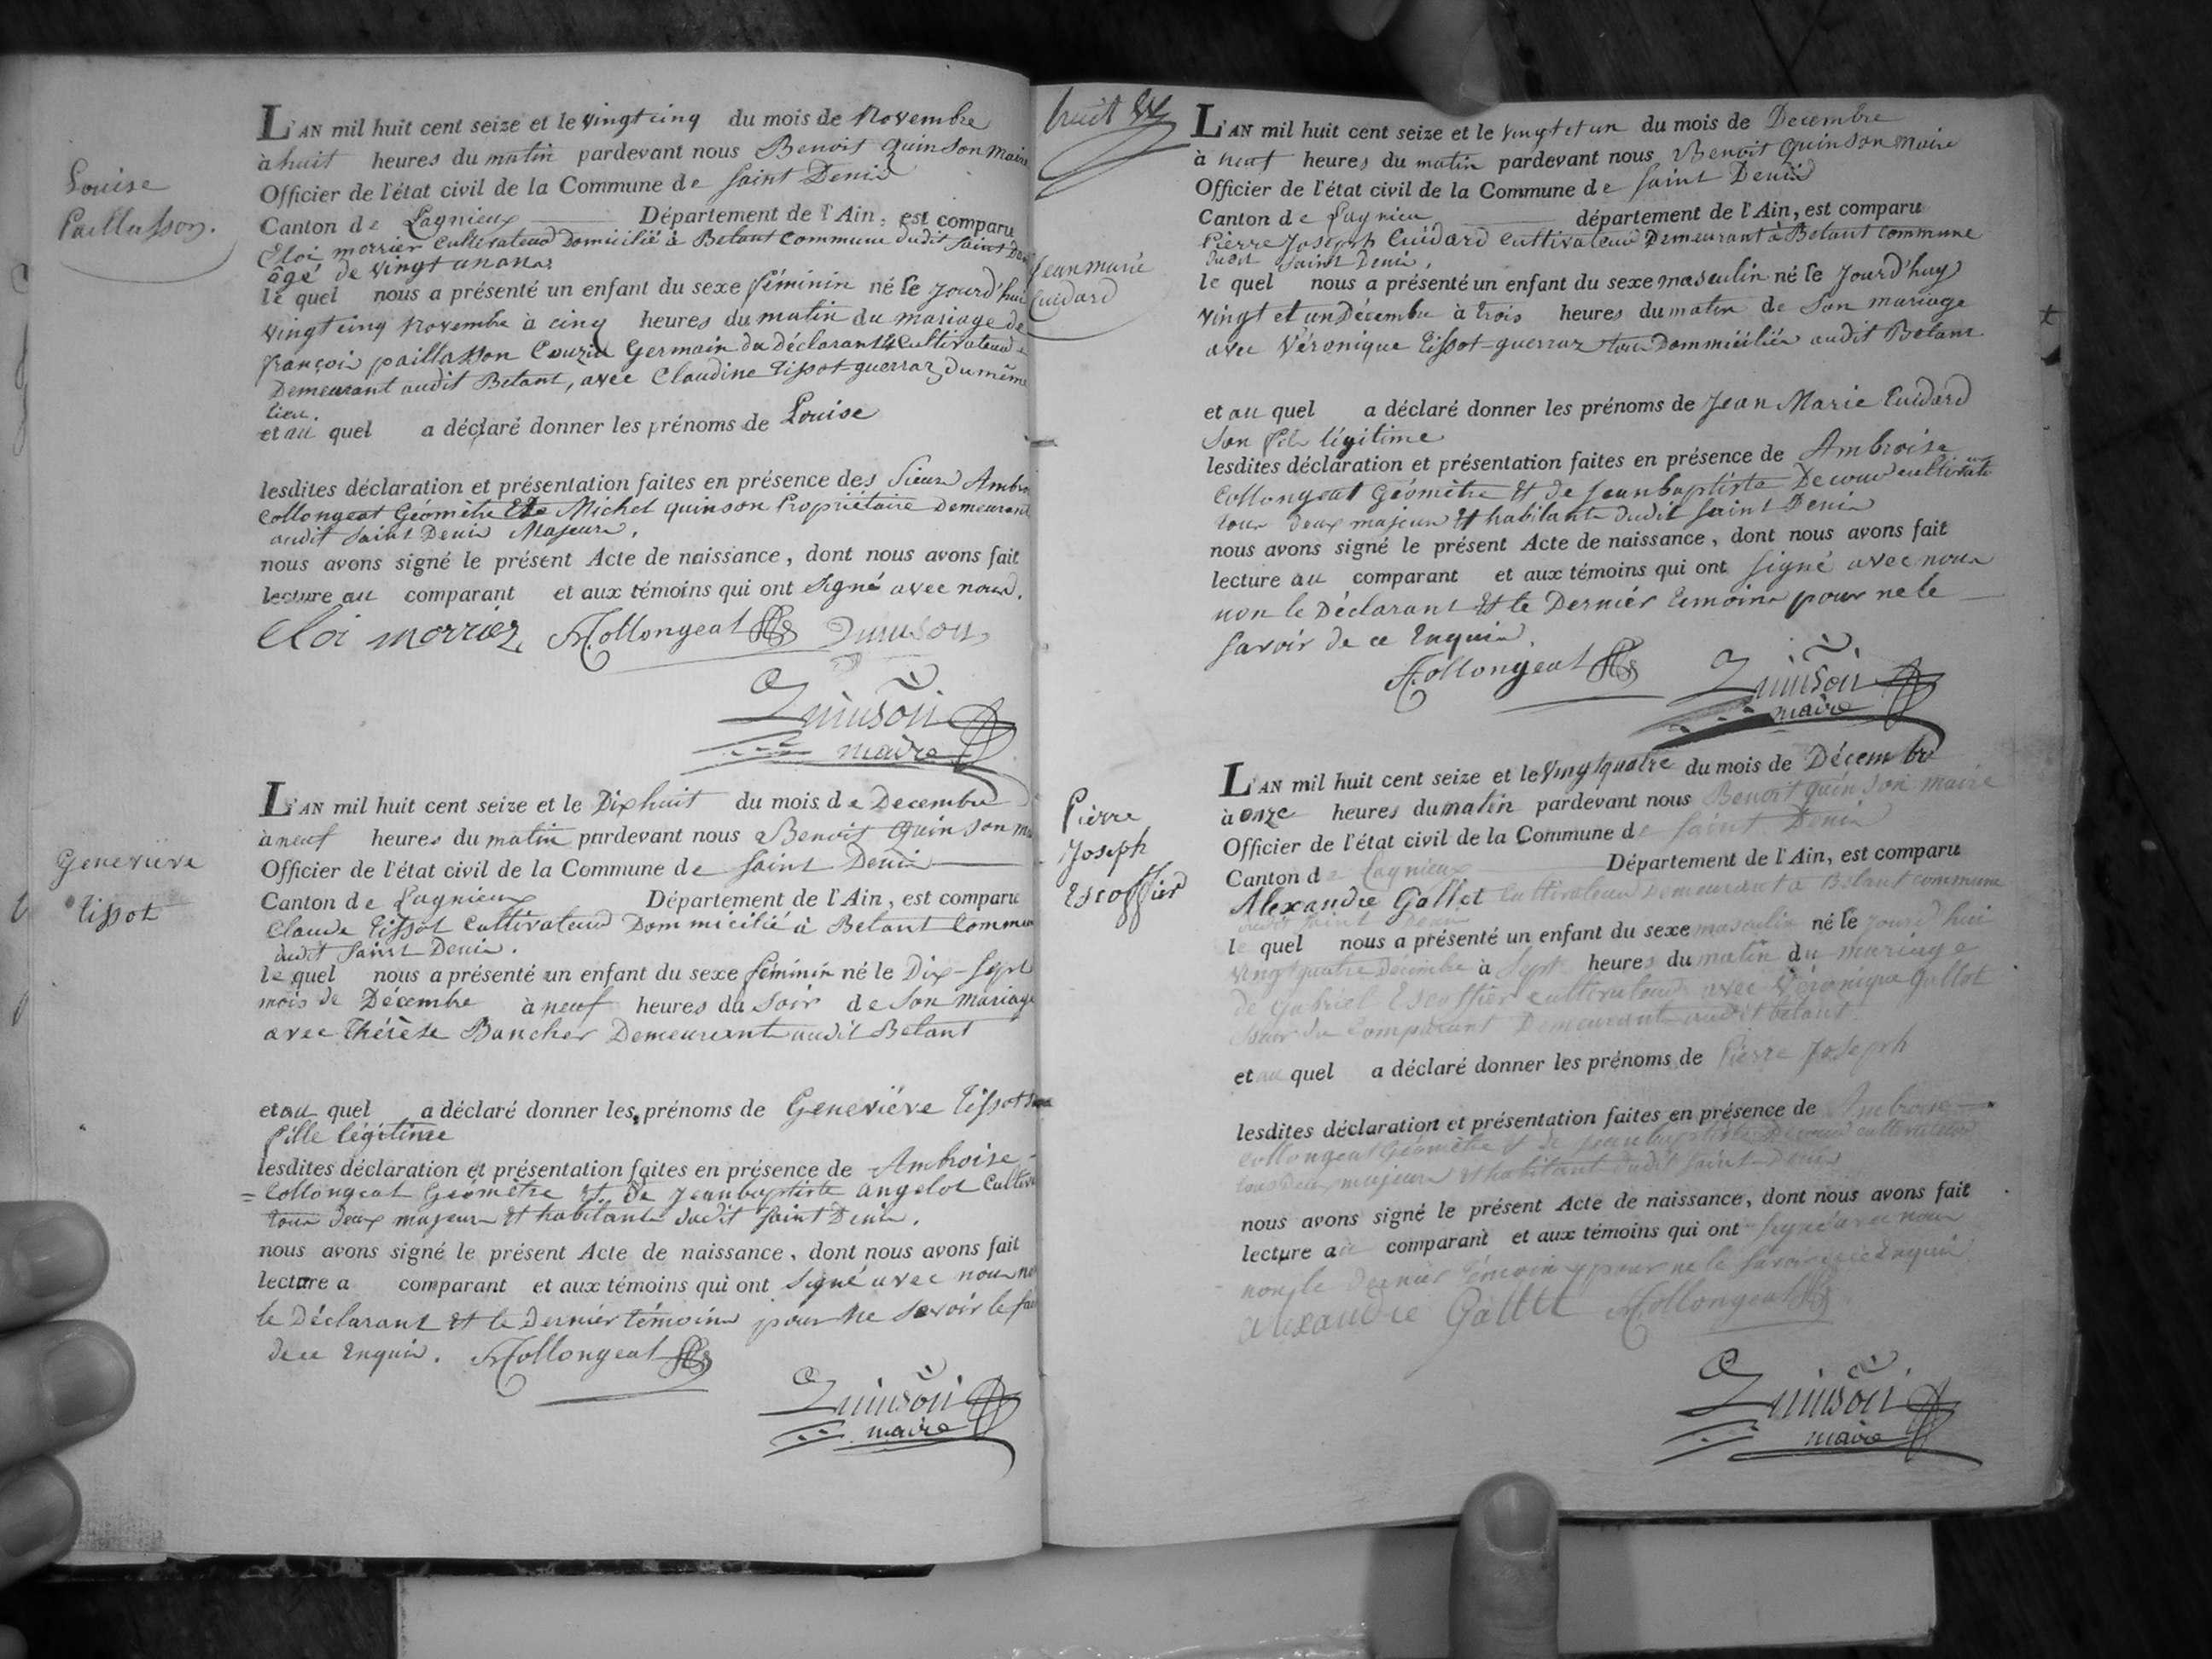 Louise
Paillasson.
L'AN mil huit cent seize et le vingt cinq du mois de Novembre
à huit heures du matin pardevant nous Benoit Quinson maire
Officier de l'état civil de la Commune de Saint Denis
Canton de Lagnieux Département de l'Ain, est comparu
Eloi morrier Cultivateur Domicilié à Betant Commune dudit Saint Denis
âgé de vingt un ans
le quel nous a présenté un enfant du sexe féminin né le jourd'hui
vingt cinq Novembre à cinq heures du matin du mariage de
françois paillasson Couzin Germain du Déclarant Cultivateur
Demeurant audit Betant, avec Claudine Tissot-guerraz, du même
lieu.
et au quel a déclaré donner les prénoms de Louise
lesdites déclaration et présentation faites en présence des Sieurs Ambroise
Collongeat Géomètre Et Michel quinson Propriétaire Demeurant
audit Saint Denis Majeurs.
nous avons signé le présent Acte de naissance, dont nous avons fait
lecture au comparant et aux témoins qui ont signé avec nous.
Eloi morrier A Collongeat Quinson
Quinson
maire
Geneviève
Tissot
L'AN mil huit cent seize et le Dix huit du mois de Decembre
à neuf heures du matin pardevant nous Benoit Quinson maire
Officier de l'état civil de la Commune de Saint Denis
Canton de Lagnieux Département de l'Ain, est comparu
Claude Tissot Cultivateur Dommicilié à Betant Commune
dudit Saint Denis.
le quel nous a présenté un enfant du sexe féminin né le Dix-Sept
mois de Décembre à neuf heures du Soir de Son mariage
avec Thérèse Bancher Demeurant audit Betant
et au quel a déclaré donner les prénoms de Geneviève Tissot Sa
fille légitime
lesdites déclaration et présentation faites en présence de Ambroise
Collongeat Géomètre Et de Jean baptiste angelot Cultiv
tous deux majeurs Et habitants dudit Saint Denis.
nous avons signé le présent Acte de naissance, dont nous avons fait
lecture a comparant et aux témoins qui ont signé avec nous non
le Déclarant Et le Dernier témoins pour ne Savoir le faire
de ce Enquis. A Collongeat
Quinson
maire
huit
Jean marie
Cuidard
L'AN mil huit cent seize et le vingt et un du mois de Decembre
à neuf heures du matin pardevant nous Benoit Quinson Maire
Officier de l'état civil de la Commune de Saint Denis
Canton de Lagnieu département de l'Ain, est comparu
Pierre Joseph Cuidard Cultivateur Demeurant à Betant Commune
dudit Saint Denis.
le quel nous a présenté un enfant du sexe masculin né le Jourd'huy
vingt et un Décembre à trois heures du matin de Son mariage
avec Véronique Tissot-guerraz tous Dommiciliés audit Betant
et au quel a déclaré donner les prénoms de Jean Marie Cuidard
Son fils légitime
lesdites déclaration et présentation faites en présence de Ambroise
Collongeat Géomètre Et de Jean baptiste Decour cultivateur
tous deux majeurs Et habitants dudit Saint Denis
nous avons signé le présent Acte de naissance, dont nous avons fait
lecture au comparant et aux témoins qui ont signé avec nous
non le Déclarant Et le Dernier témoins pour ne le
Savoir de ce Enquis.
A Collongeat Quinson
maire
Pierre
Joseph
Escoffier
L'AN mil huit cent seize et le vingt quatre du mois de Décembre
à onze heures du matin pardevant nous Benoit quinson maire
Officier de l'état civil de la Commune de Saint Denis
Canton de Lagnieux Département de l'Ain, est comparu
Alexandre Gallet Cultivateur Demeurant à Betant commune
dudit Saint Denis
le quel nous a présenté un enfant du sexe masculin né le jourd'hui
vingt quatre Décembre à Sept heures du matin du mariage
de Gabriel Escoffier cultivateur avec Véronique Gallet
Sœur du Comparant Demeurant audit betant.
et au quel a déclaré donner les prénoms de Pierre Joseph
lesdites déclaration et présentation faites en présence de Ambroise
Collongeat Géomètre Et de Jean baptiste Decour cultivateur
tous deux majeurs Et habitant dudit Saint Denis
nous avons signé le présent Acte de naissance, dont nous avons fait
lecture au comparant et aux témoins qui ont signé avec nous
non le dernier témoin pour ne le Savoir de ce Enquis
alexandre Gallet A Collongeat
Quinson
maire